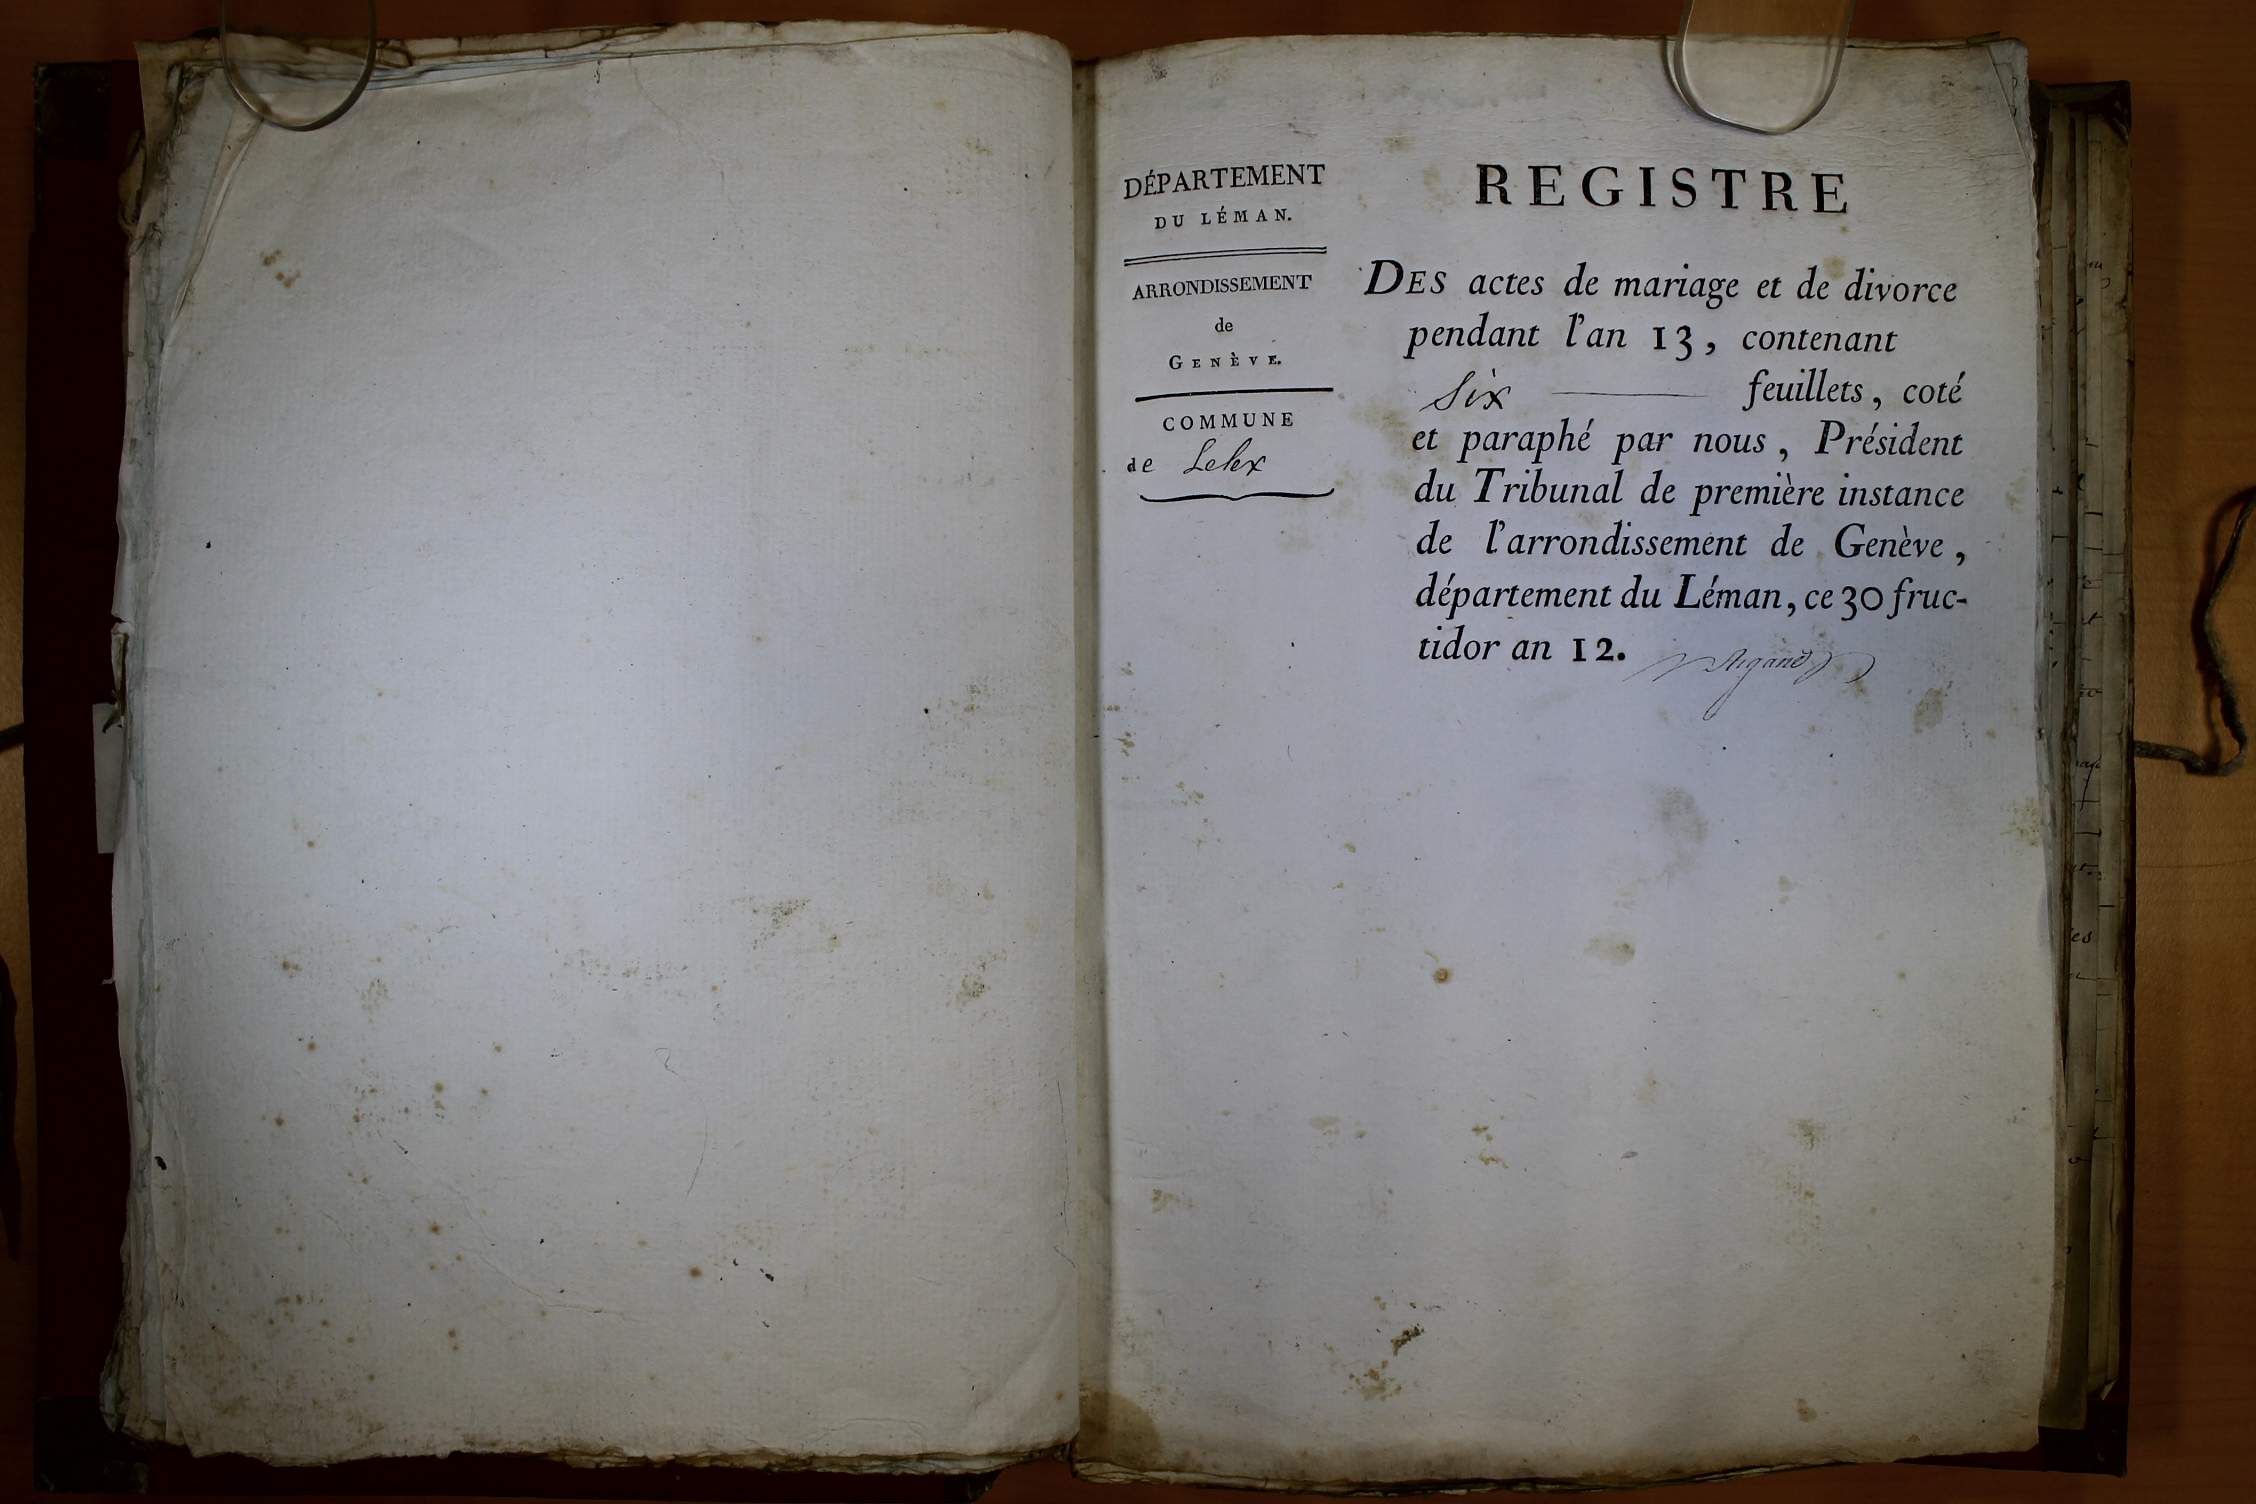 DÉPARTEMENT
DU LÉMAN.
ARRONDISSEMENT
de
GENÈVE.
COMMUNE
de Lelex
REGISTRE
DES actes de mariage et de divorce
pendant l'an 13, contenant
six feuillets, coté
et paraphé par nous, Président
du Tribunal de première instance
de l'arrondissement de Genève,
département du Léman, ce 30 fruc-
tidor an 12.
Argand